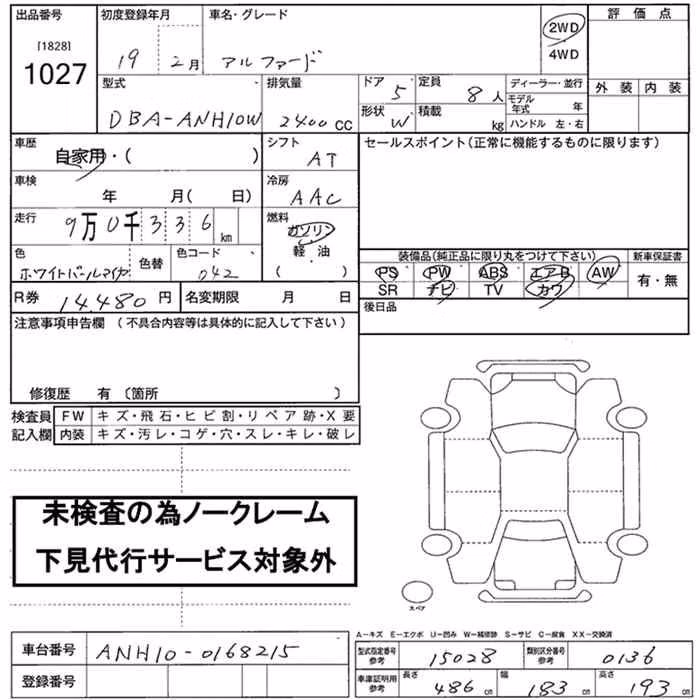 出品番号
[1828]
1027
初度登録年月
19 2月
車名・グレード
アルファード
2WD
4WD
評 価 点
外 装 内 装
型式
DBA-ANH10W
排気量
2400 CC
ドア 5
形状 W
定員 8 人
積載 kg
ディーラー・並行
モデル年式 年
ハンドル 左・右
車歴
自家用・( )
シフト
AT
セールスポイント(正常に機能するものに限ります)
車検
年 月( 日)
冷房
AAC
走行
9万0千336km
燃料
ガソリン
軽・油
( )
色
ホワイトパールマイカ
色替
色コード
042
装備品(純正品に限り丸をつけて下さい)
PS PW ABS エアB AW
SR ナビ TV カワ
新車保証書
有・無
R券 14,480 円
名変期限 月 日
後日品
注意事項申告欄 (不具合内容等は具体的に記入して下さい)
修復歴 有 〔箇所 〕
検査員記入欄
FW キズ・飛石・ヒビ割・リペア跡・X要
内装 キズ・汚レ・コゲ・穴・スレ・キレ・破レ
未検査の為ノークレーム
下見代行サービス対象外
スペア
A-キズ E-エクボ U-凹み W-補修跡 S-サビ C-腐食 XX-交換済
車台番号 ANH10-0168215
登録番号
型式指定番号 参考 15028
類別区分番号 参考 0136
車庫証明用 参考
長さ 486 cm
幅 183 cm
高さ 193 cm